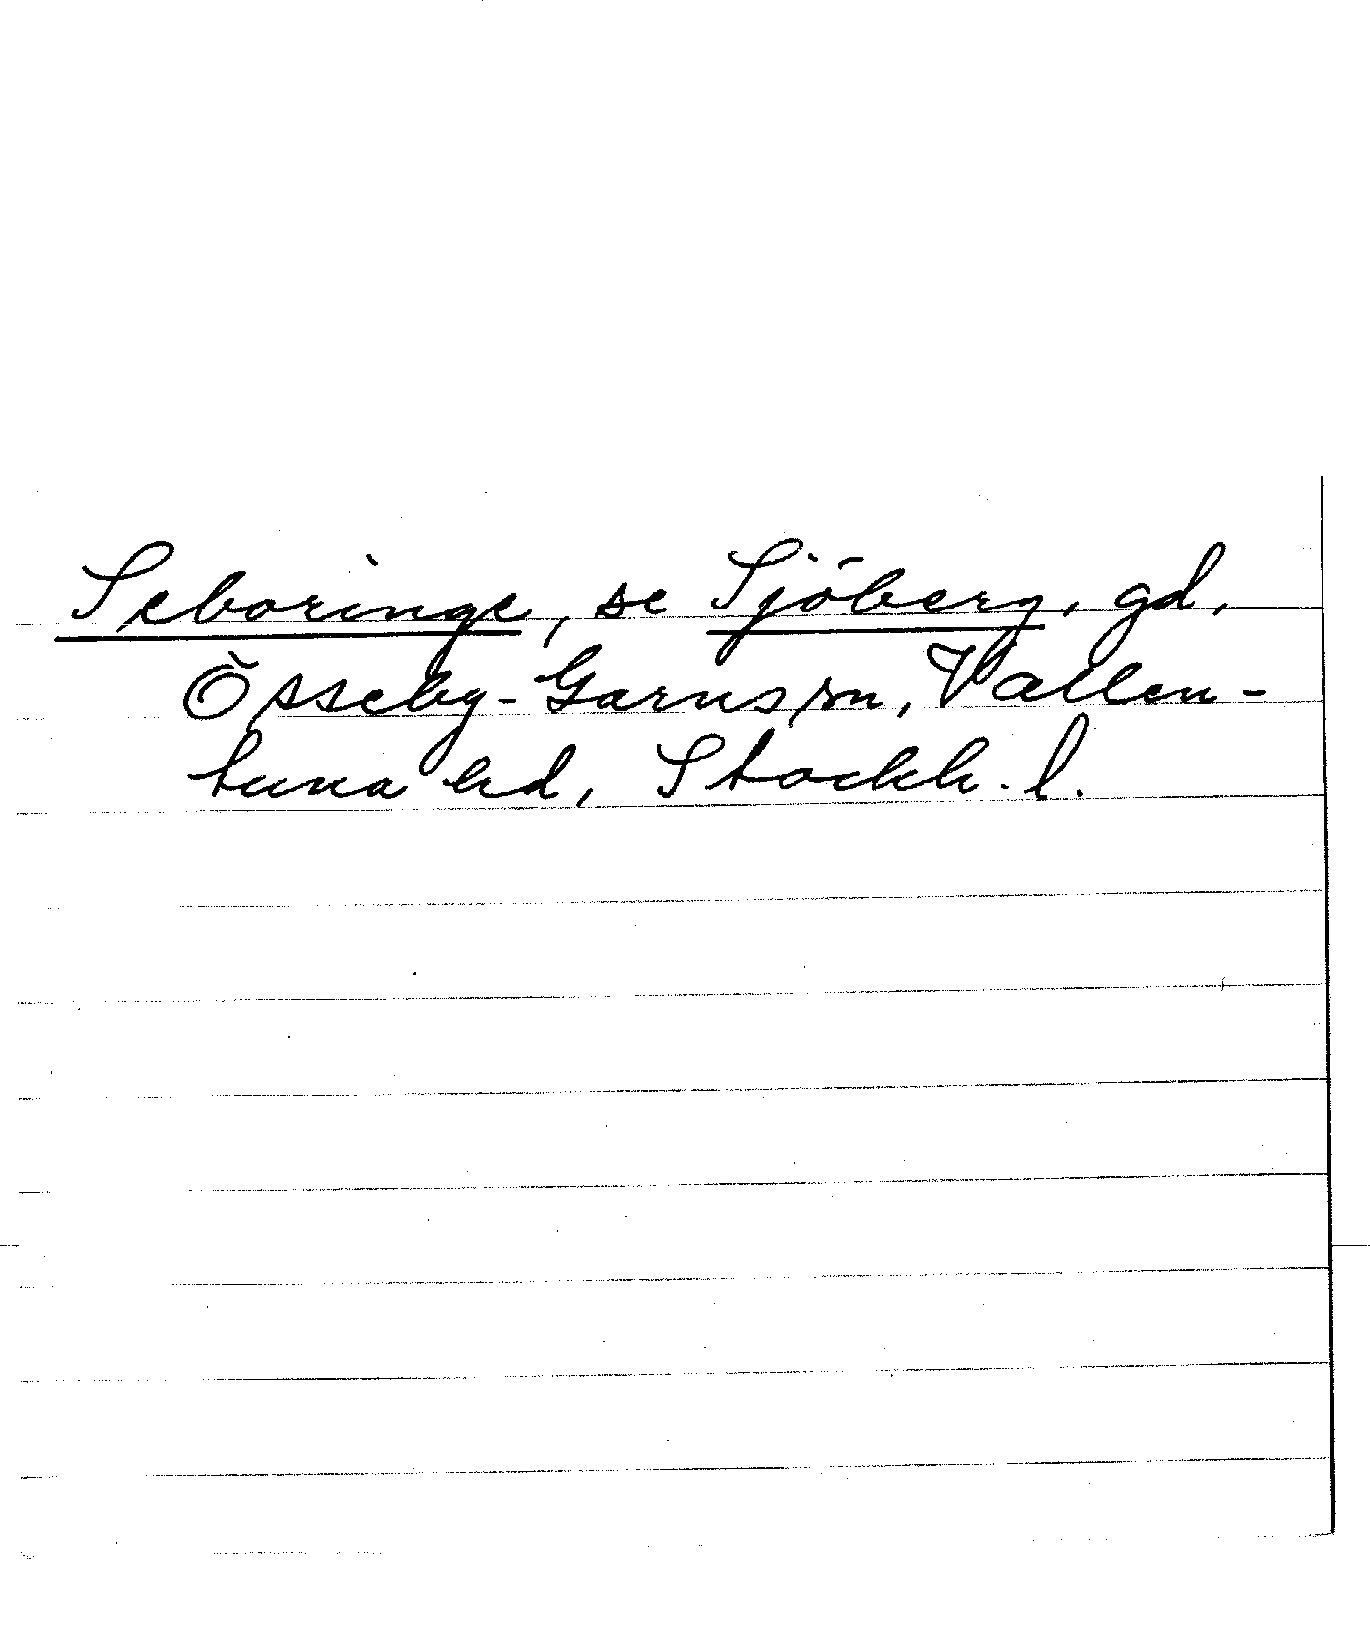 Seboringe, se Sjöberg, gd,
Össeby-Garns sn, Vallen-
tuna hd, Stockh. l.